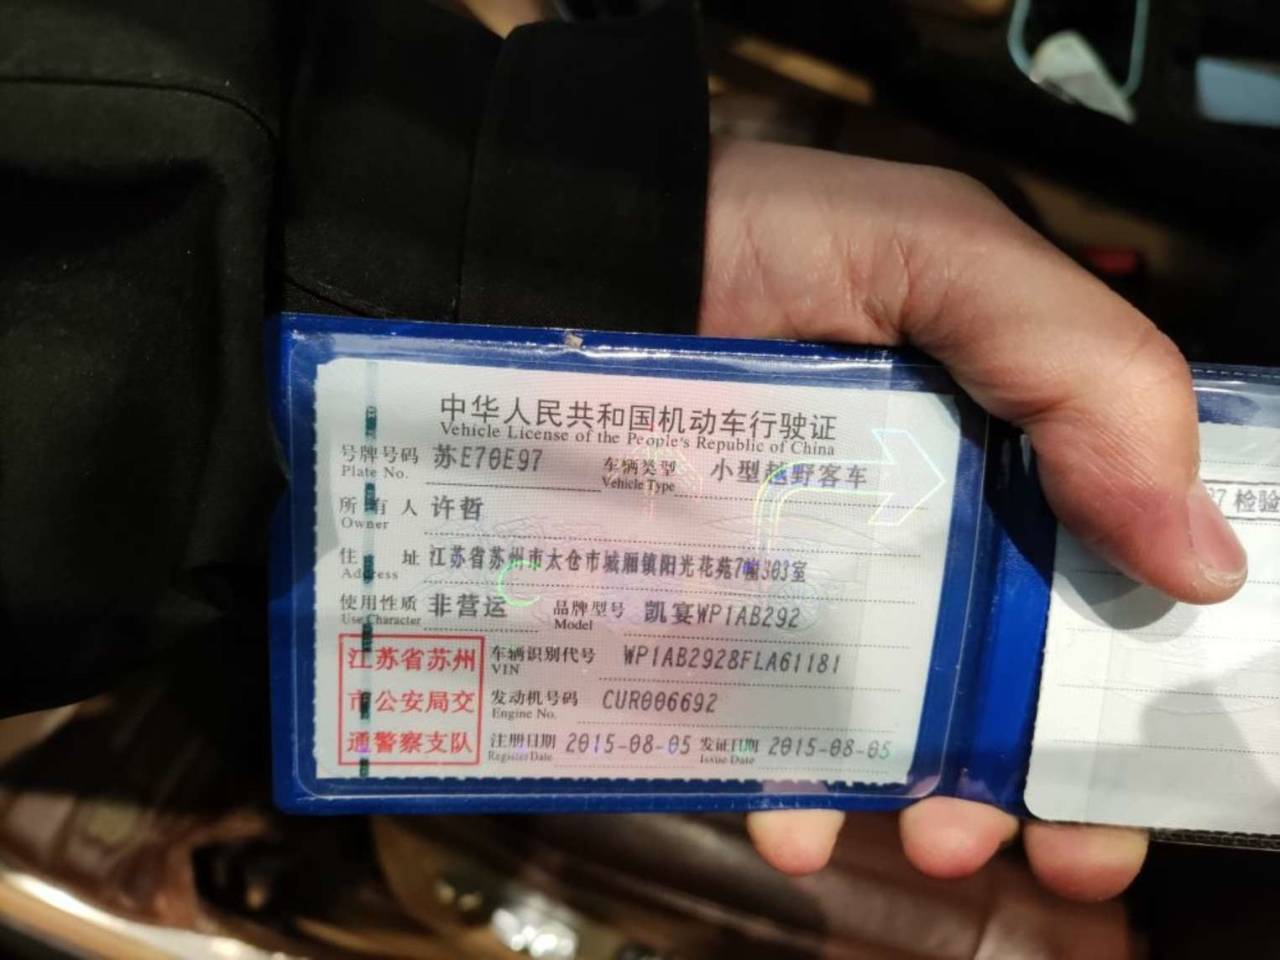 中华人民共和国机动车行驶证
Vehicle License of the People's Republic of China
号牌号码 苏E70E97 车辆类型 小型越野客车
Plate No. Vehicle Type
所有人 许哲
Owner
住址 江苏省苏州市太仓市城厢镇阳光花苑7幢303室
Address
使用性质 非营运 品牌型号 凯宴WP1AB292
Use Character Model
江苏省苏州
市公安局交
通警察支队
车辆识别代号 WP1AB2928FLA61181
VIN
发动机号码 CUR006692
Engine No.
注册日期 2015-08-05 发证日期 2015-08-05
Register Date Issue Date
检验